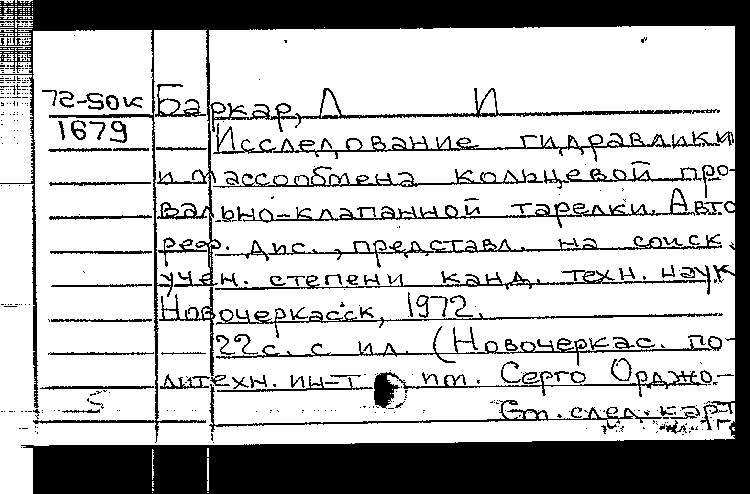 72-50к Баркар, Л И
1679 Исследование гидравлики
и массообмена кольцевой про-
вально-клапанной тарелки. Авто
реф. дис., представл. на соиск.
учен. степени канд. техн. наук
Новочеркасск, 1972.
22 с. с ил. (Новочеркас. по-
литехн. ин-т им. Серго Орджо-
См. след. карт